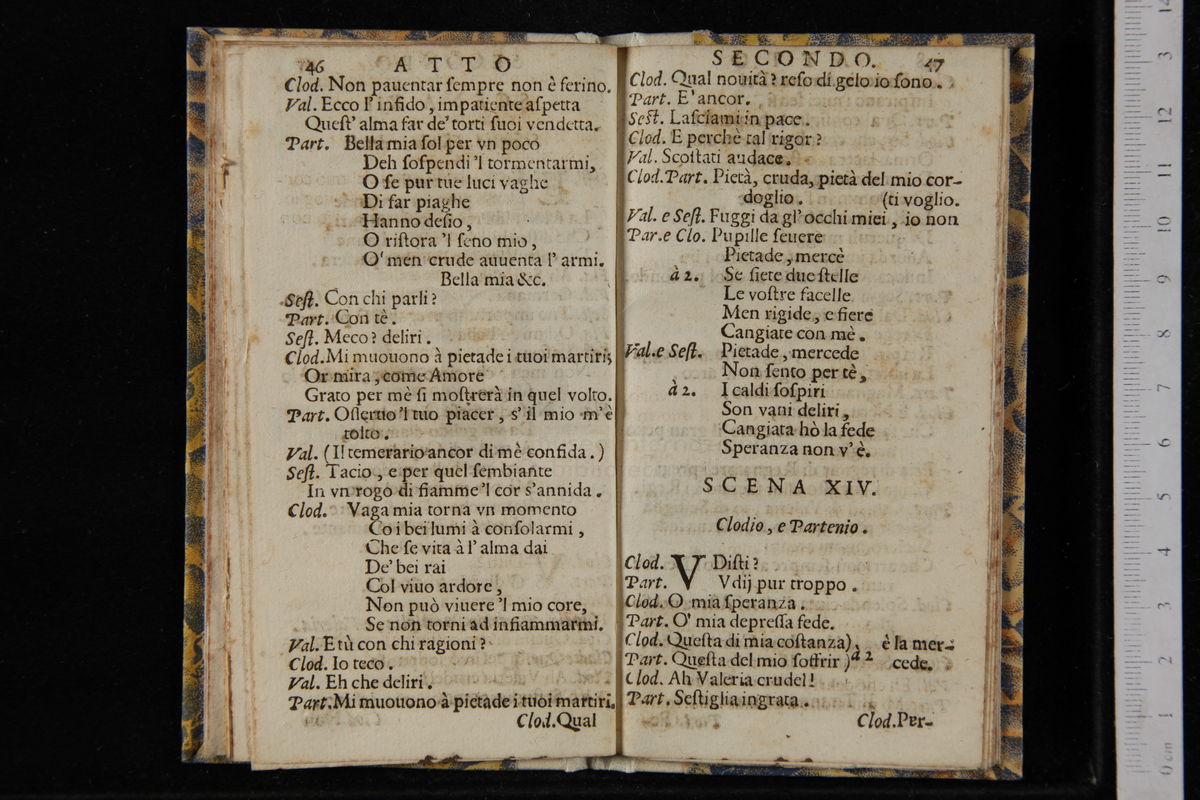 46 ATTO
Clod. Non pauentar ſempre non è ferino.
Val. Ecco l' infido, impatiente aſpetta
Queſt' alma far de' torti ſuoi vendetta.
Part. Bella mia ſol per vn poco
Deh ſoſpendi 'l tormentarmi,
O ſe pur tue luci vaghe
Di far piaghe
Hanno deſio,
O riſtora 'l ſeno mio,
O' men crude auuenta l' armi.
Bella mia &c.
Seſt. Con chi parli?
Part. Con tè.
Seſt. Meco? deliri.
Clod. Mi muouono à pietade i tuoi martiri;
Or mira, come Amore
Grato per mè ſi moſtrerà in quel volto.
Part. Oſſeruo 'l tuo piacer, s' il mio m'è
tolto.
Val. (Il temerario ancor di mè confida.)
Seſt. Tacio, e per quel ſembiante
In vn rogo di fiamme 'l cor s'annida.
Clod. Vaga mia torna vn momento
Co i bei lumi à conſolarmi,
Che ſe vita à l' alma dai
De' bei rai
Col viuo ardore,
Non può viuere 'l mio core,
Se non torni ad infiammarmi.
Val. E tù con chi ragioni?
Clod. Io teco.
Val. Eh che deliri.
Part. Mi muouono à pietade i tuoi martiri.
Clod. Qual
SECONDO. 47
Clod. Qual nouità? reſo di gelo io ſono.
Part. E' ancor.
Seſt. Laſciami in pace.
Clod. E perchè tal rigor?
Val. Scoſtati audace.
Clod. Part. Pietà, cruda, pietà del mio cor-
doglio. (ti voglio.
Val. e Seſt. Fuggi da gl' occhi miei, io non
Par. e Clo. Pupille ſeuere
Pietade, mercè
à 2. Se ſiete due ſtelle
Le voſtre facelle
Men rigide, e fiere
Cangiate con mè.
Val. e Seſt. Pietade, mercede
Non ſento per tè,
à 2. I caldi ſoſpiri
Son vani deliri,
Cangiata hò la fede
Speranza non v' è.
SCENA XIV.
Clodio, e Partenio.
Clod. VDiſti?
Part. Vdij pur troppo.
Clod. O mia ſperanza.
Part. O' mia depreſſa fede.
Clod. Queſta di mia coſtanza), è la mer-
Part. Queſta del mio ſoffrir ) à 2 cede.
Clod. Ah Valeria crudel!
Part. Seſtiglia ingrata.
Clod. Per-
0 cm 1 2 3 4 5 6 7 8 9 10 11 12 13 14